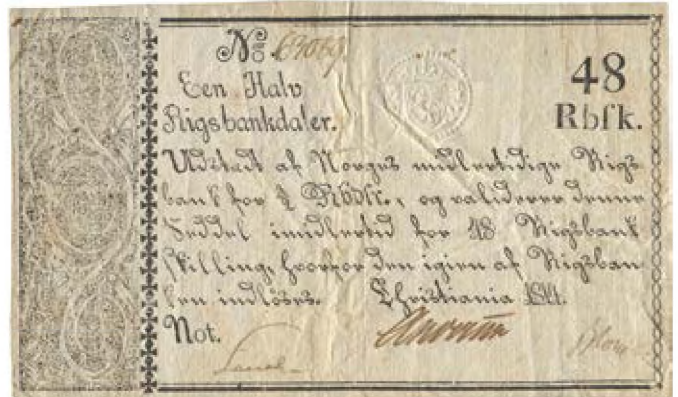 No
Een Halv
Rigsbankdaler.
48
Rbſk.
Udstædt af Norges midlertidige Rigs
bank for ½ Rbdlr., og validerer denne
Seddel imidlertid for 48 Rigsbank
ſkilling, hvorfor den igien af Rigsban
ken indlöses. Christiania 1814.
Not.